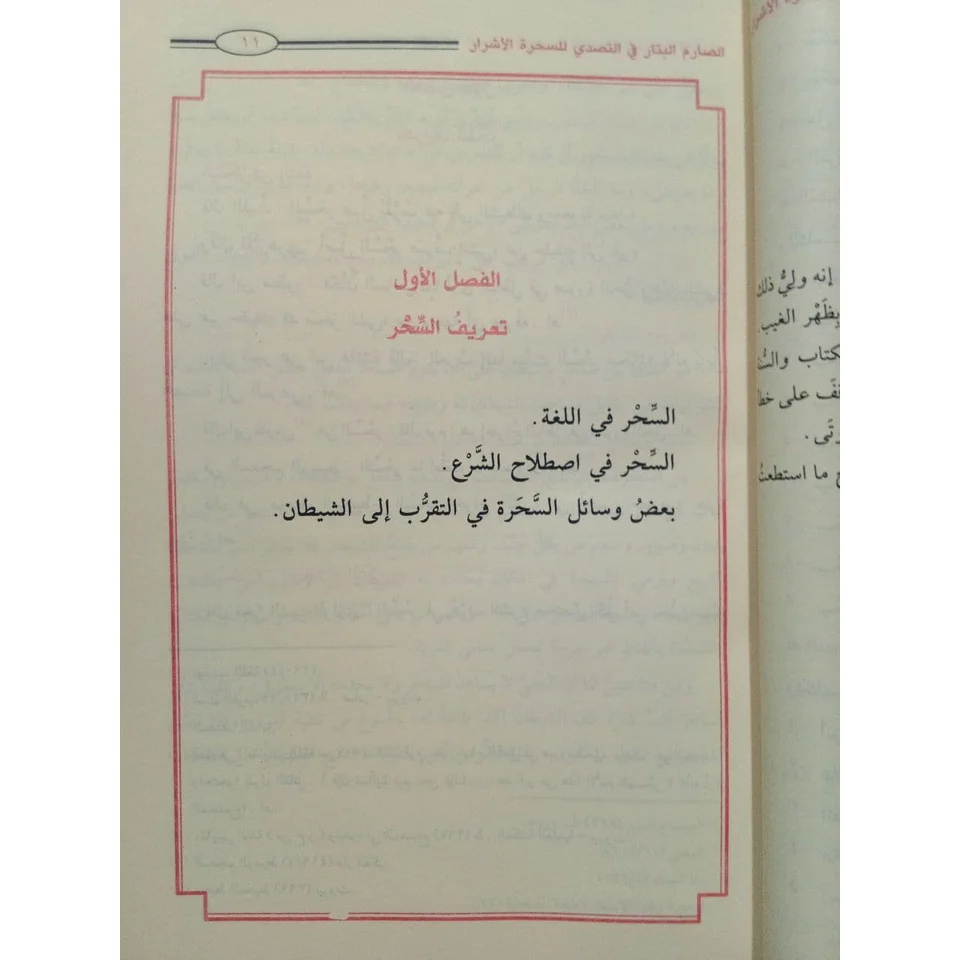 الصارم البتار في التصدي للسحرة الأشرار
١١
الفصل الأول
تعريفُ السِّحْر
السِّحْر في اللغة.
السِّحْر في اصطلاح الشَّرْع.
بعضُ وسائل السَّحَرة في التقرُّب إلى الشيطان.
إنه وليُّ ذلك
بِظَهْر الغيب.
على خطأ
ما استطعتُ